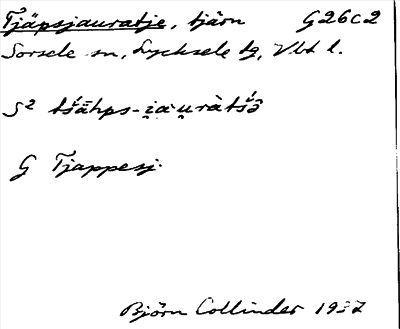 Tjäpsjauratje, tjärn G26c2
Sorsele sn, Lycksele lg, Vbt l.
S² tśāhps-i̯a·u̯ràtśɔ̄
G Tjappesj.
Björn Collinder 1937